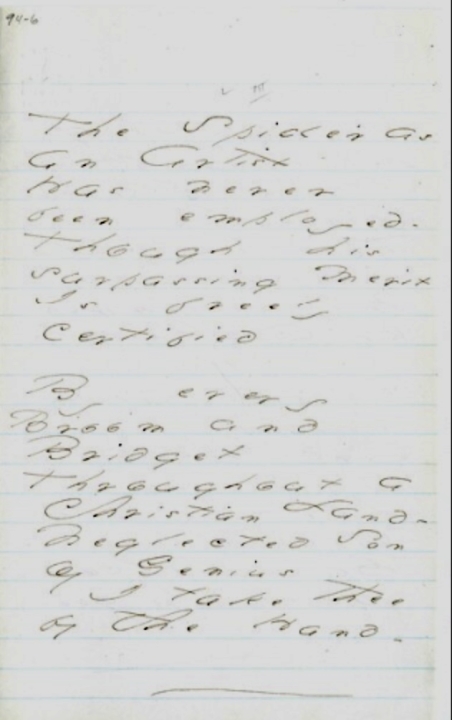 94-6
The Spider as
an Artist
Has never
been employed -
Though his
surpassing Merit
Is freely
Certified
By every
Broom and
Bridget
Throughout a
Christian Land -
Neglected Son
of Genius
I take thee
by the Hand -